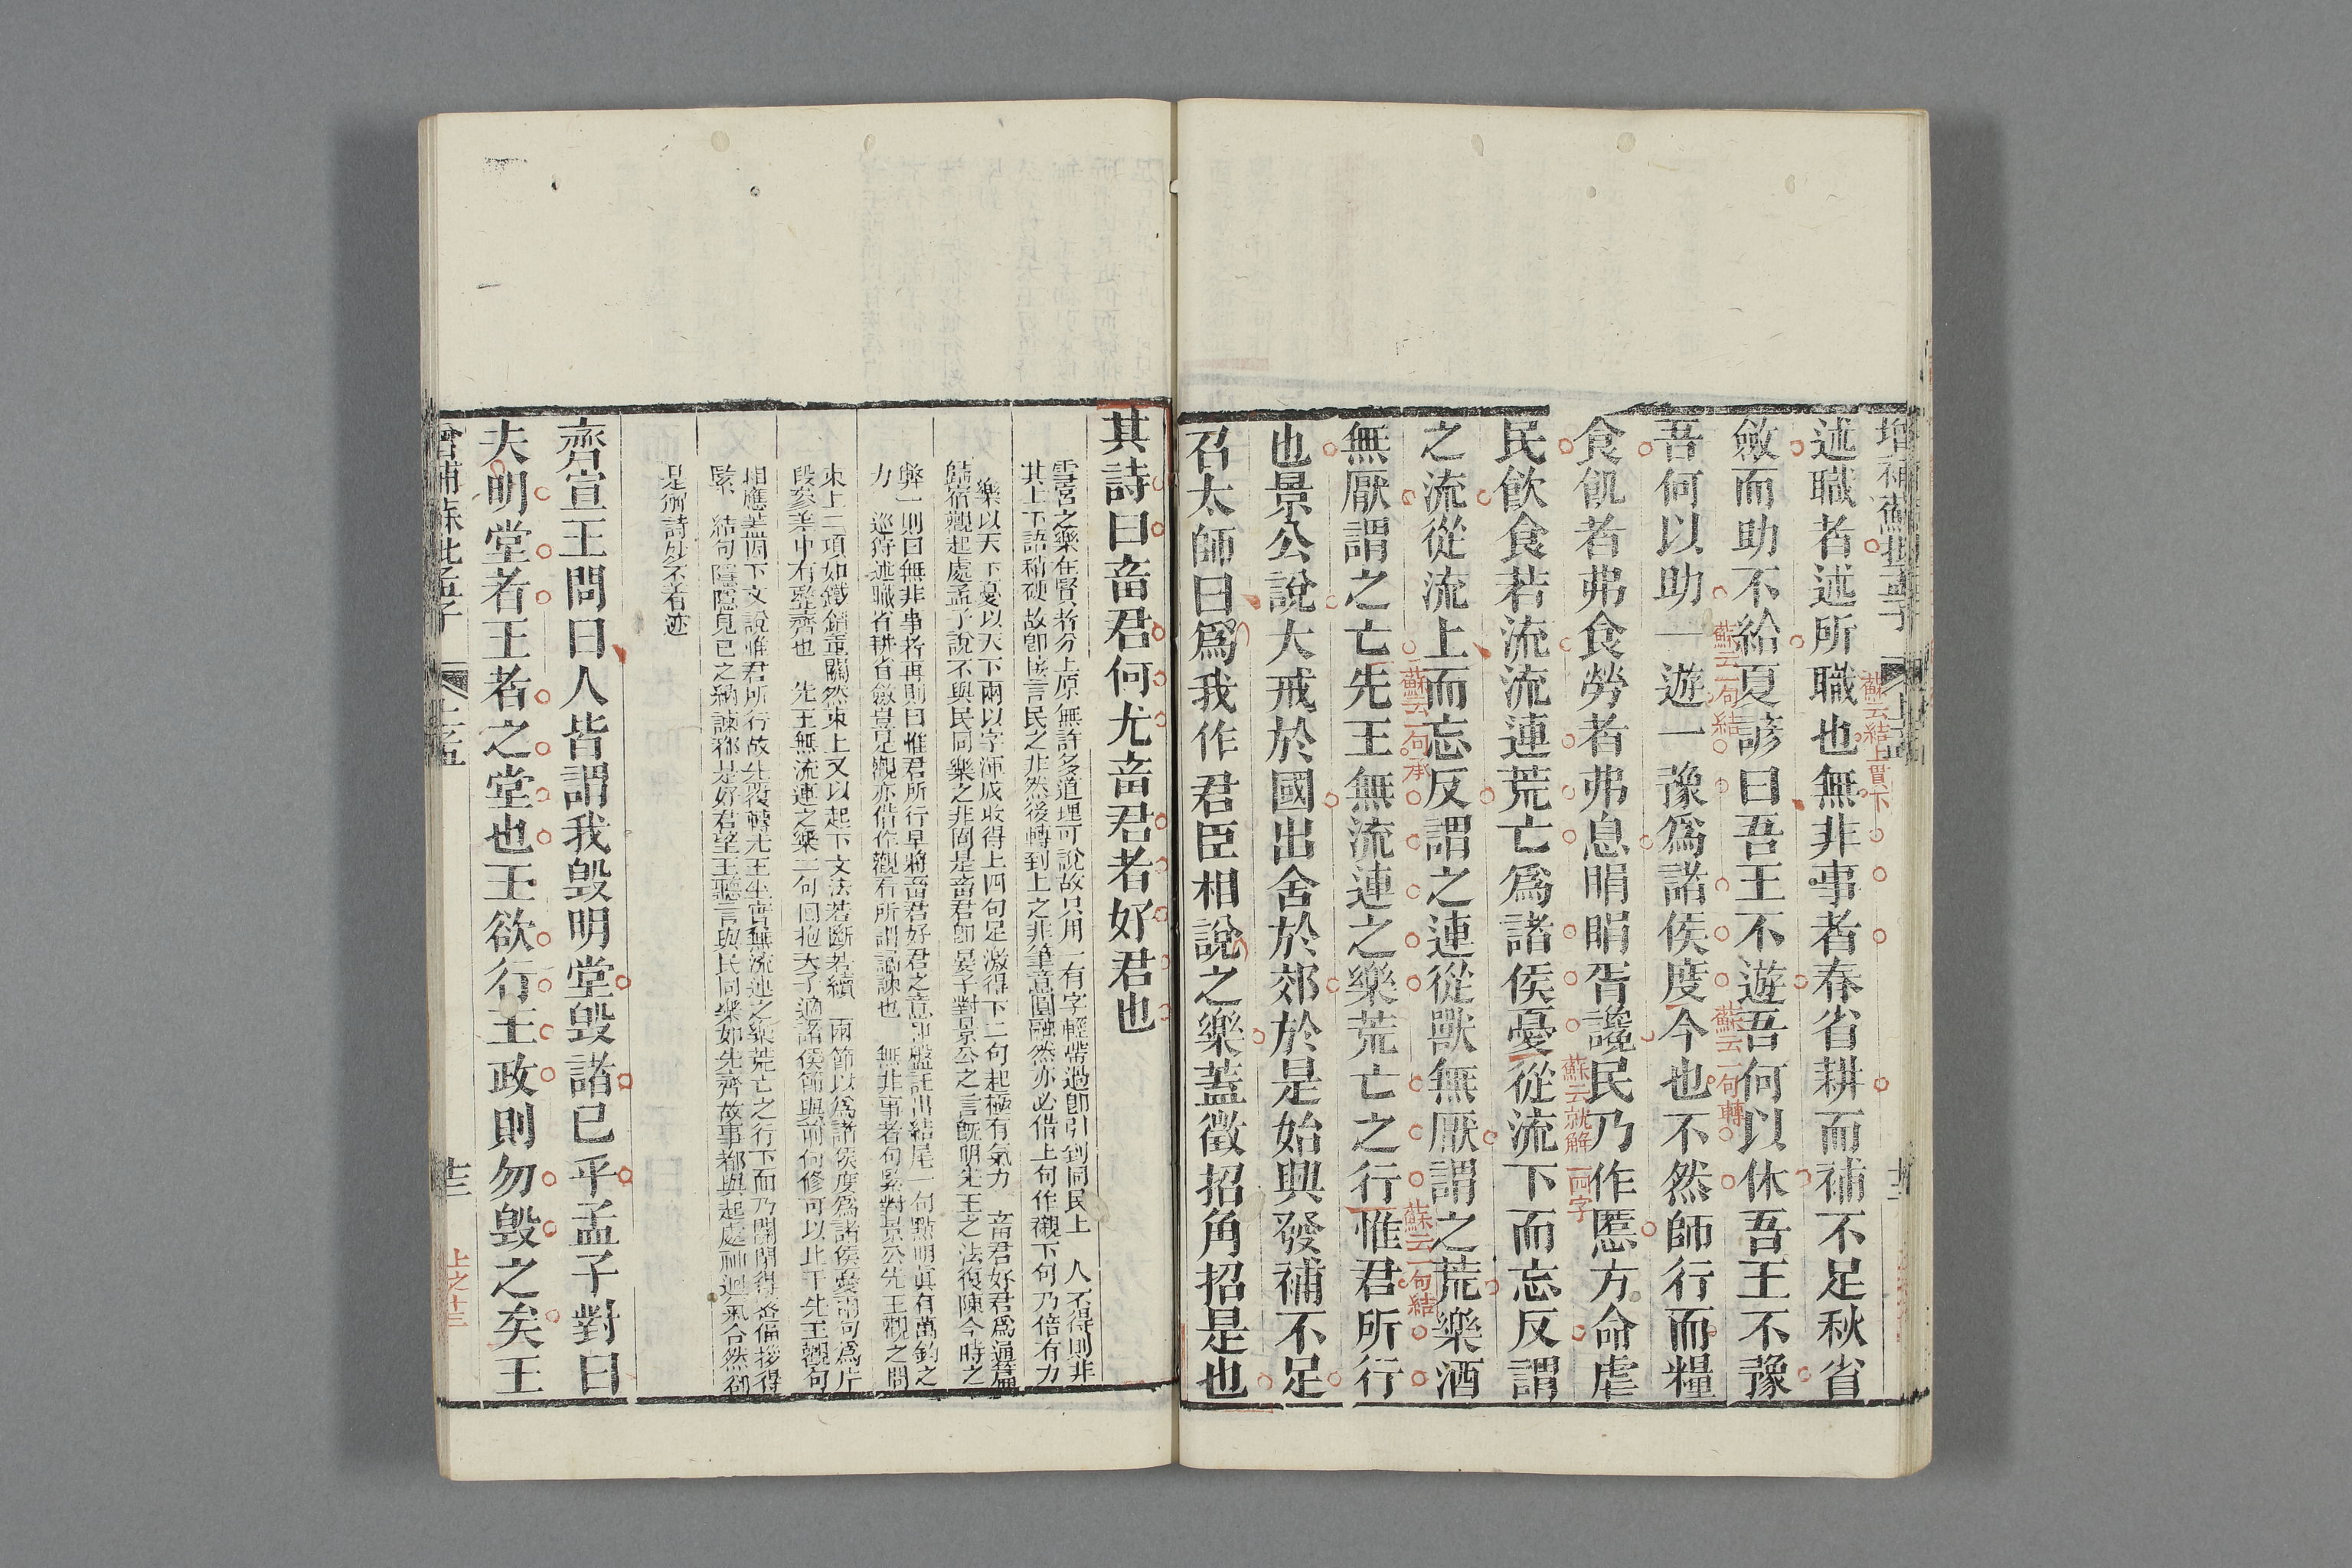 增補蘇批孟子
述職者述所職也無非事者春省耕而補不足秋省
蘇云結上貫下
斂而助不給夏諺曰吾王不遊吾何以休吾王不豫
蘇云一句結
蘇云一句轉
吾何以助一遊一豫爲諸侯度今也不然師行而糧
食飢者弗食勞者弗息睊睊胥讒民乃作慝方命虐
蘇云就解兩字
民飲食若流流連荒亡爲諸侯憂從流下而忘反謂
之流從流上而忘反謂之連從獸無厭謂之荒樂酒
蘇云一句承
蘇云一句結
無厭謂之亡先王無流連之樂荒亡之行惟君所行
也景公說大戒於國出舍於郊於是始興發補不足
召太師曰爲我作君臣相說之樂蓋徵招角招是也
其詩曰畜君何尤畜君者好君也
雪宮之樂在賢者分上原無許多道理可說故只用一有字輕帶過卽引到同民上　人不得則非
其上下語稍硬故卽接言民之非然後轉到上之非筆意圓融然亦必借上句作襯下句乃倍有力
樂以天下憂以天下兩以字渾成收得上四句足激得下二句起極有氣力　畜君好君爲通篇
歸宿觀起處孟子說不與民同樂之非固是畜君卽晏子對景公之言旣明先王之法復陳今時之
弊一則曰無非事者再則曰惟君所行早將畜君好君之意和盤託出結尾一句點明眞有萬鈞之
力　巡狩述職省耕省斂豈是觀亦借作觀看所謂譎諫也　無非事者句緊對景公先王觀之問
束上二項如鐵鎖重關然束上又以起下文法若斷若續　兩節以爲諸侯度爲諸侯憂兩句爲片
段參差中有整齊也　先王無流連之樂二句回抱天子適諸侯節與前何修可以比于先王觀句
相應蓋因下文說惟君所行故先復轉先王坐實無流連之樂荒亡之行下而乃開閉得密偪拶得
緊　結句隱隱見己之納諫都是好君望王聽言與民同樂如先齊故事都與起處神迴氣合然卻
是街詩妙不著迹
齊宣王問曰人皆謂我毀明堂毀諸已乎孟子對曰
夫明堂者王者之堂也王欲行王政則勿毀之矣王
增補蘇批孟子
上孟
上之十三